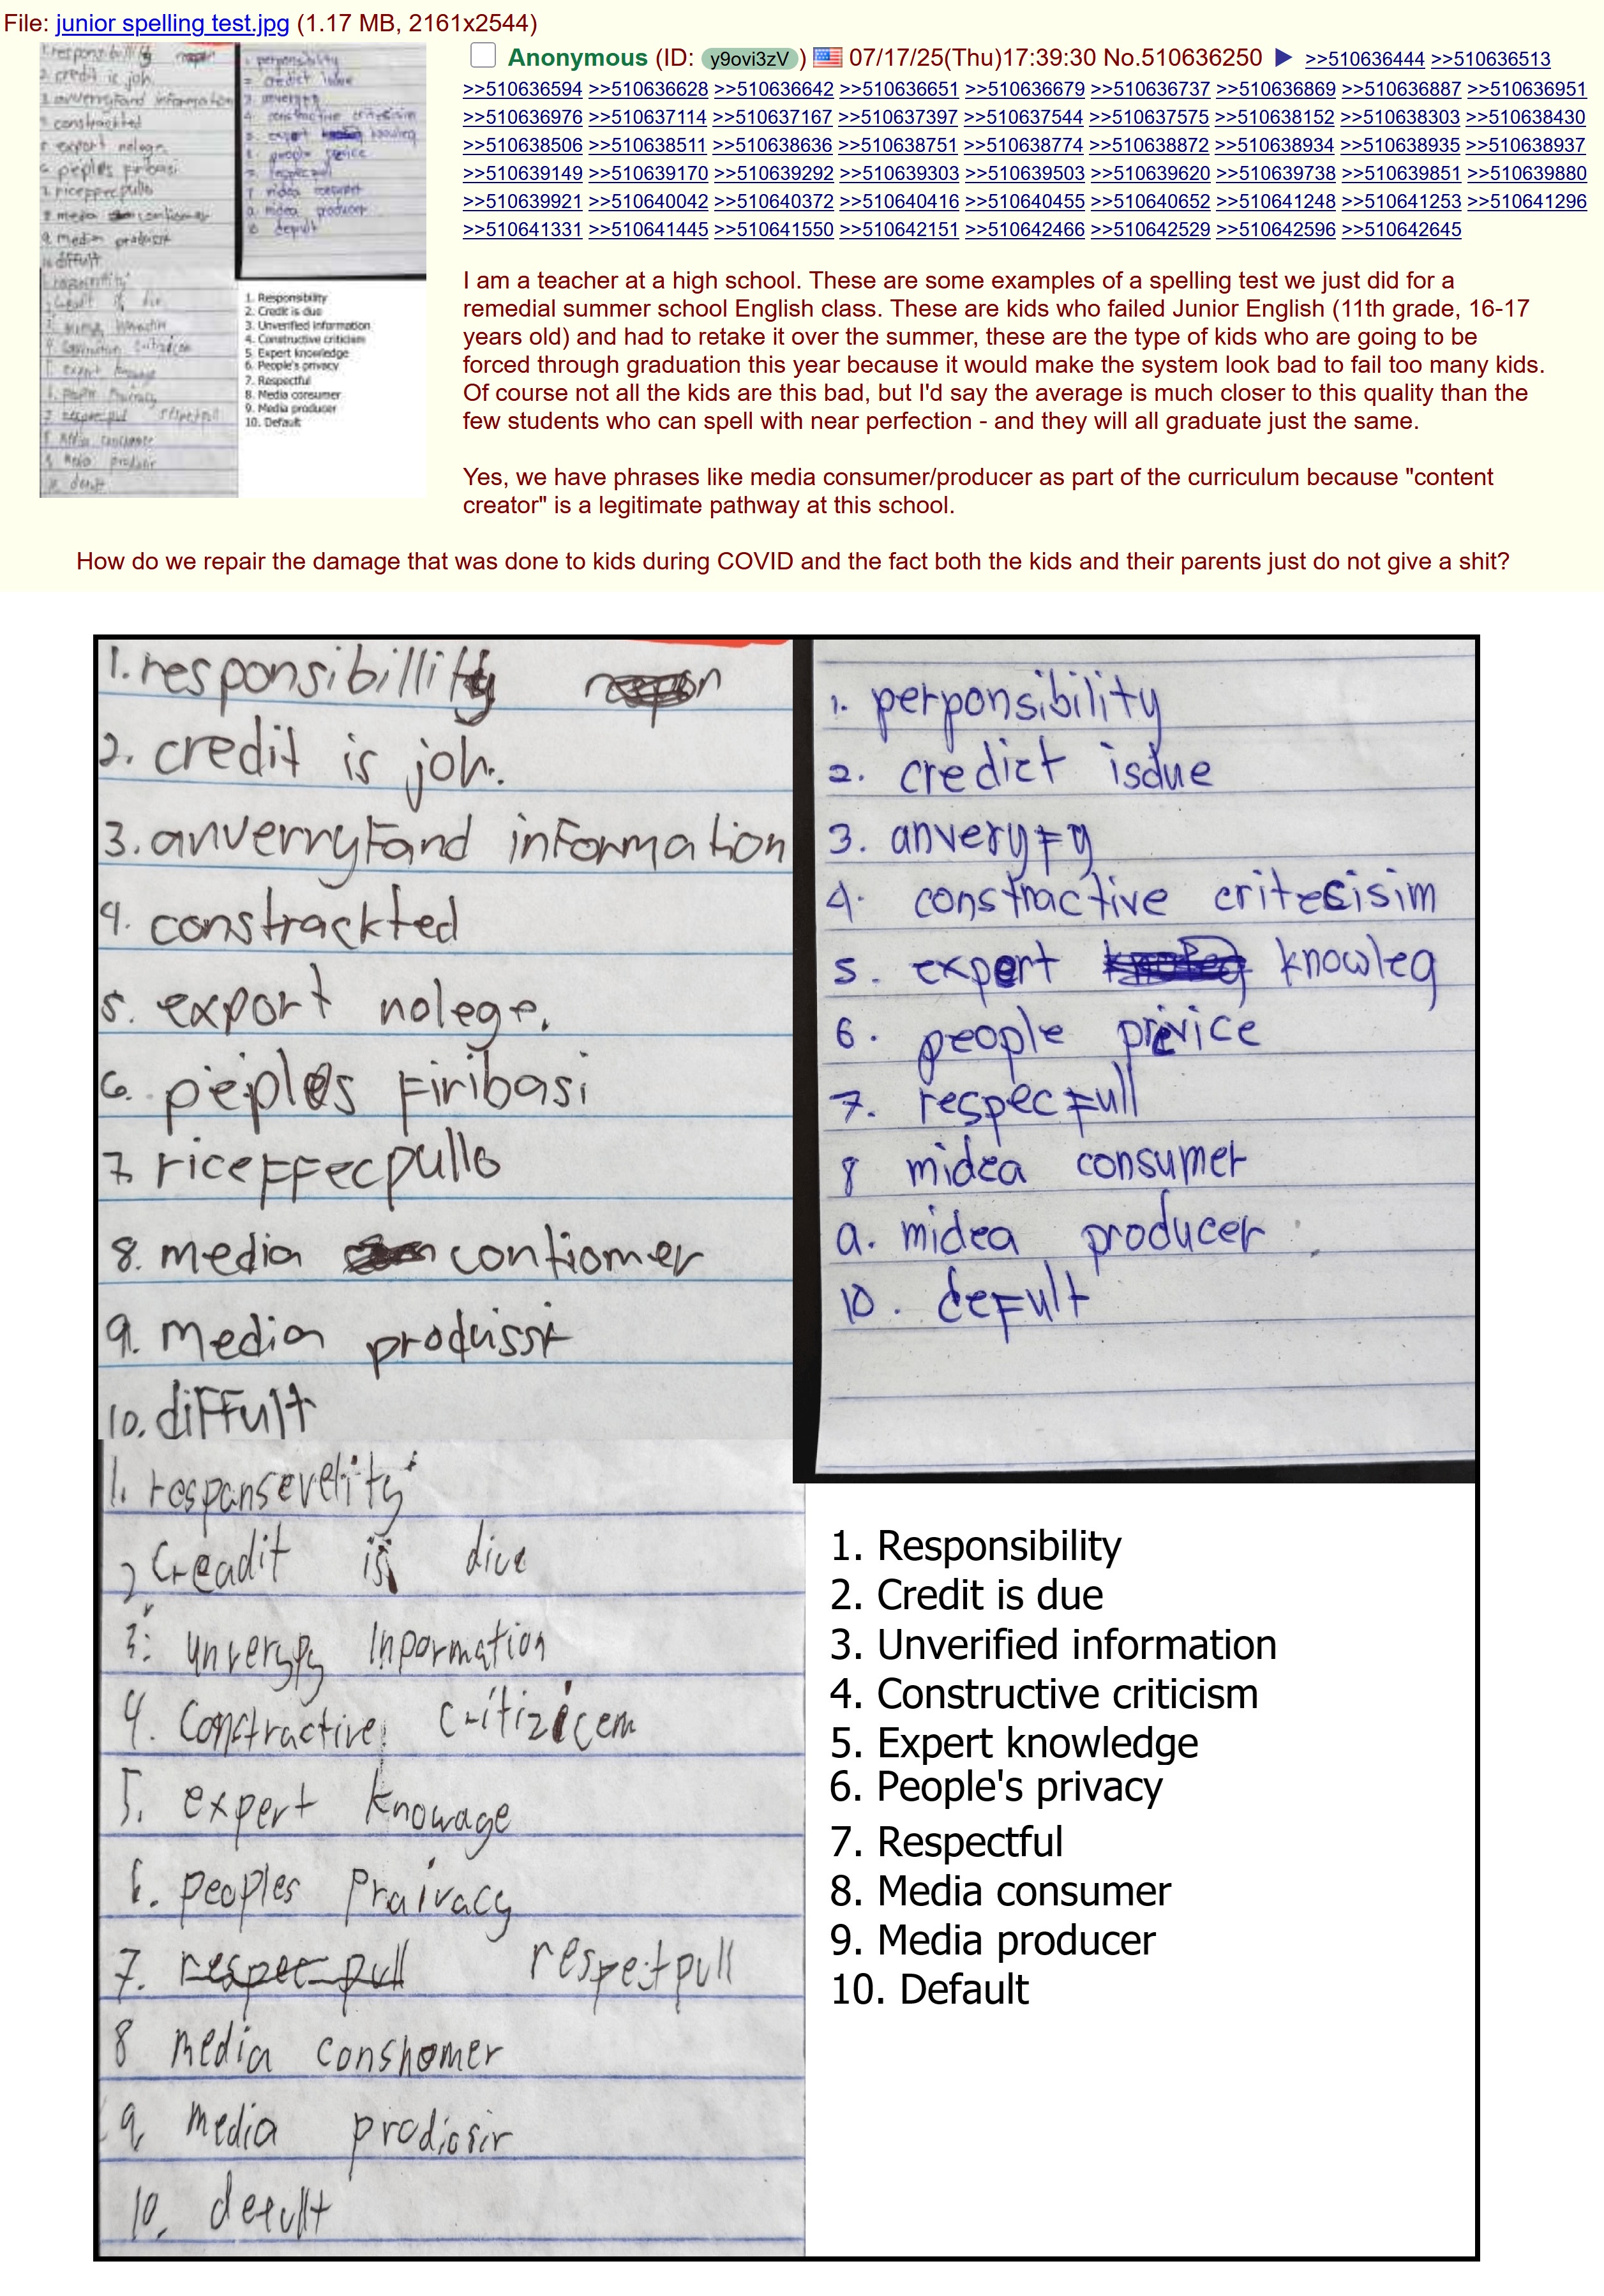 File: junior spelling test.jpg (1.17 MB, 2161x2544)
Anonymous (ID: y9ovi3zV) 07/17/25(Thu)17:39:30 No.510636250 ▶ >>510636444 >>510636513
>>510636594 >>510636628 >>510636642 >>510636651 >>510636679 >>510636737 >>510636869 >>510636887 >>510636951
>>510636976 >>510637114 >>510637167 >>510637397 >>510637544 >>510637575 >>510638152 >>510638303 >>510638430
>>510638506 >>510638511 >>510638636 >>510638751 >>510638774 >>510638872 >>510638934 >>510638935 >>510638937
>>510639149 >>510639170 >>510639292 >>510639303 >>510639503 >>510639620 >>510639738 >>510639851 >>510639880
>>510639921 >>510640042 >>510640372 >>510640416 >>510640455 >>510640652 >>510641248 >>510641253 >>510641296
>>510641331 >>510641445 >>510641550 >>510642151 >>510642466 >>510642529 >>510642596 >>510642645
I am a teacher at a high school. These are some examples of a spelling test we just did for a
remedial summer school English class. These are kids who failed Junior English (11th grade, 16-17
years old) and had to retake it over the summer, these are the type of kids who are going to be
forced through graduation this year because it would make the system look bad to fail too many kids.
Of course not all the kids are this bad, but I'd say the average is much closer to this quality than the
few students who can spell with near perfection - and they will all graduate just the same.
Yes, we have phrases like media consumer/producer as part of the curriculum because "content
creator" is a legitimate pathway at this school.
How do we repair the damage that was done to kids during COVID and the fact both the kids and their parents just do not give a shit?
1. responsibillity
2. credit is joh.
3. anverryfand information
4. constrackted
5. export nolege.
6. peiples firibasi
7. riceffecpullo
8. media contiomer
9. media produisst
10. diffult
1. perponsibility
2. credict isdue
3. anveryfy
4. constractive critecisim
5. expert knowleg
6. people privice
7. respecfull
8 midea consumer
9. midea producer
10. defult
1. respansevelity
2 Creadit is diue
3. unverypy Inpormation
4. Constractive critizicem
5. expert knowage
6. peoples Praivacy
7. respec pull respetpull
8 media conshomer
9. media prodiosir
10. defult
1. Responsibility
2. Credit is due
3. Unverified information
4. Constructive criticism
5. Expert knowledge
6. People's privacy
7. Respectful
8. Media consumer
9. Media producer
10. Default